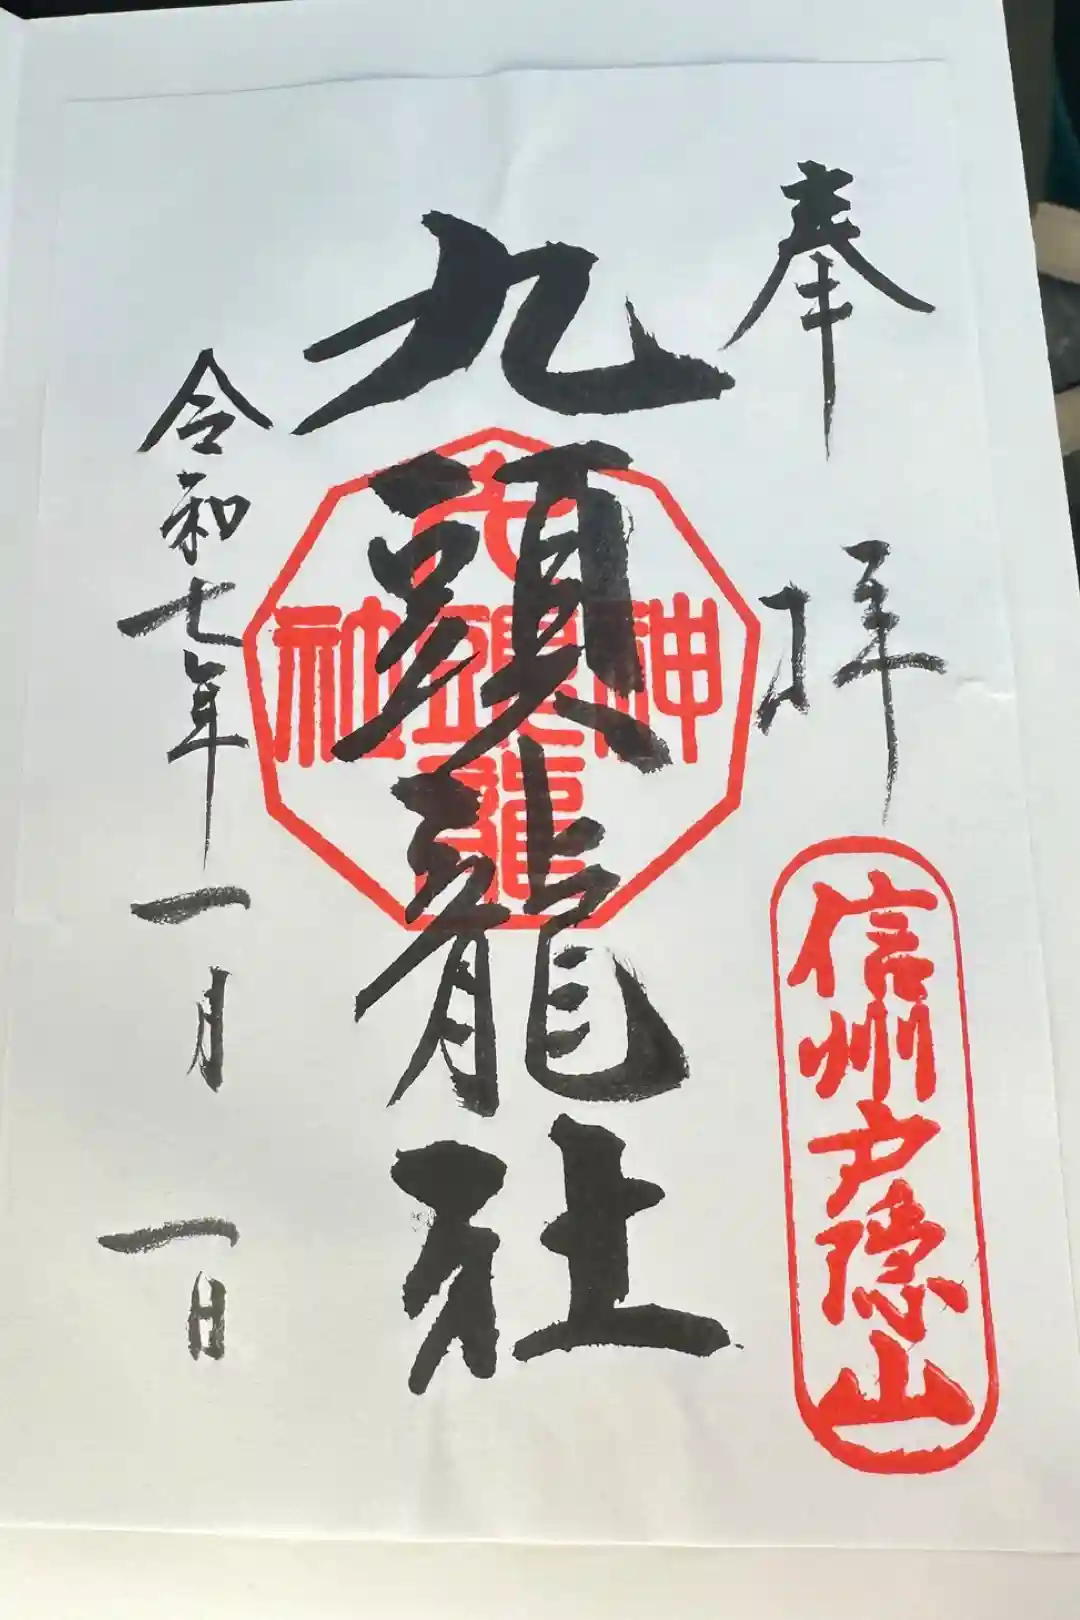 奉拝
信州戸隠山
九頭龍社
九頭龍
神
社
令和七年一月一日